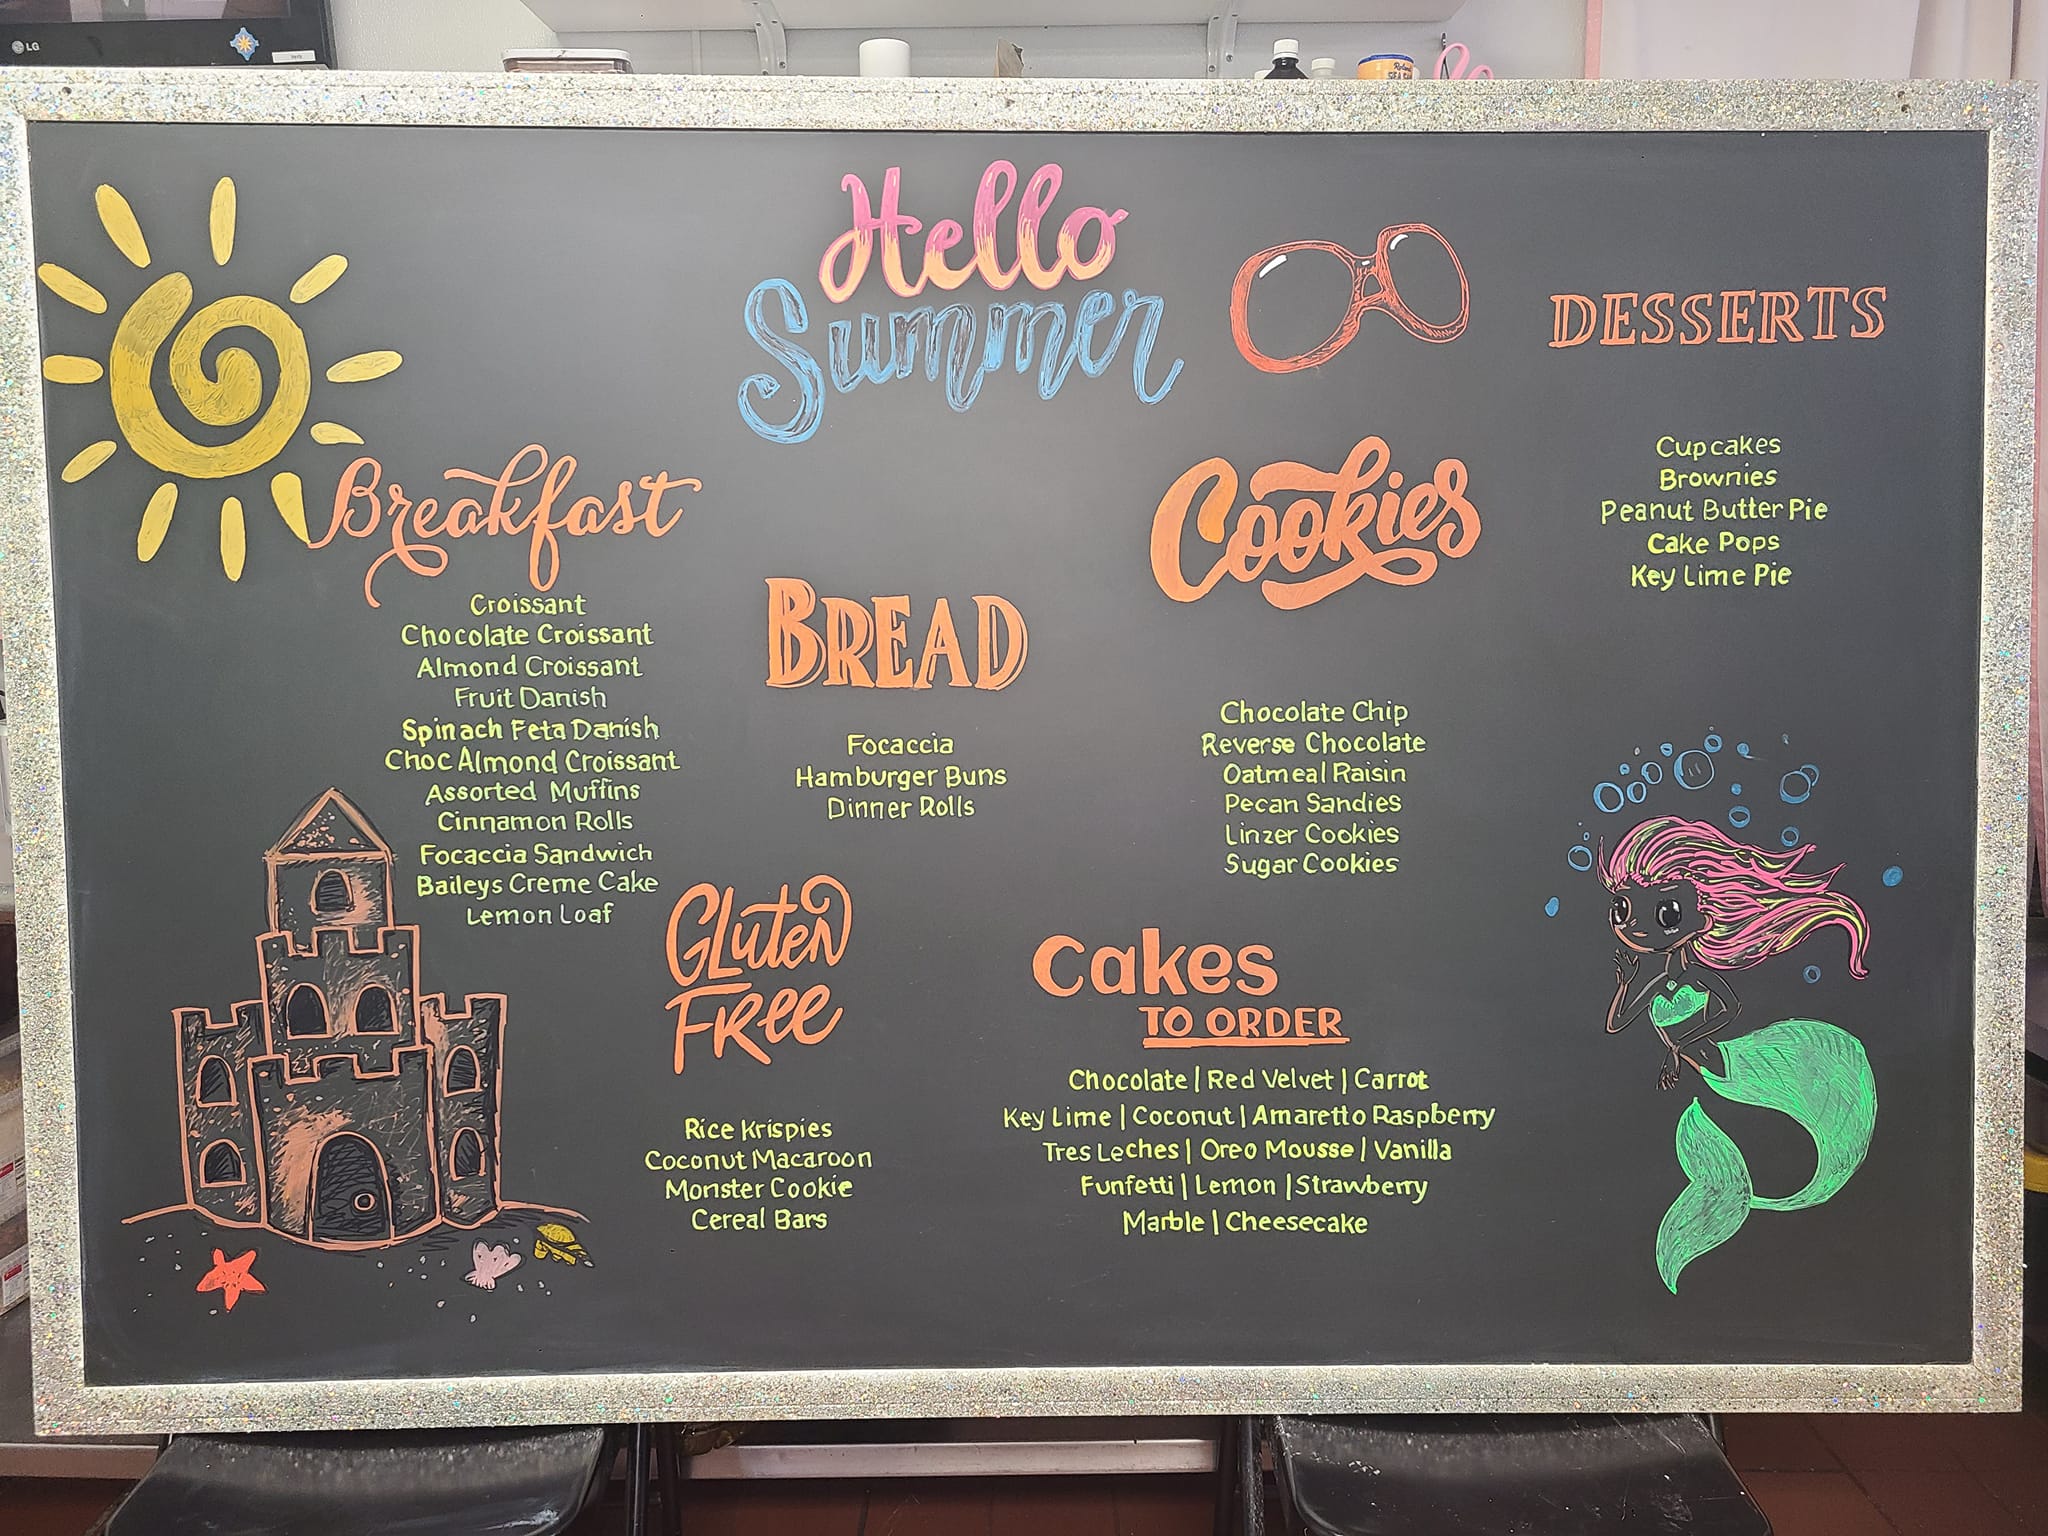 LG
Hello
Summer
Breakfast
Croissant
Chocolate Croissant
Almond Croissant
Fruit Danish
Spinach Feta Danish
Choc Almond Croissant
Assorted Muffins
Cinnamon Rolls
Focaccia Sandwich
Baileys Creme Cake
Lemon Loaf
BREAD
Focaccia
Hamburger Buns
Dinner Rolls
Gluten
Free
Rice Krispies
Coconut Macaroon
Monster Cookie
Cereal Bars
Cookies
Chocolate Chip
Reverse Chocolate
Oatmeal Raisin
Pecan Sandies
Linzer Cookies
Sugar Cookies
Cakes
TO ORDER
Chocolate | Red Velvet | Carrot
Key Lime | Coconut | Amaretto Raspberry
Tres Leches | Oreo Mousse | Vanilla
Funfetti | Lemon | Strawberry
Marble | Cheesecake
DESSERTS
Cupcakes
Brownies
Peanut Butter Pie
Cake Pops
Key Lime Pie